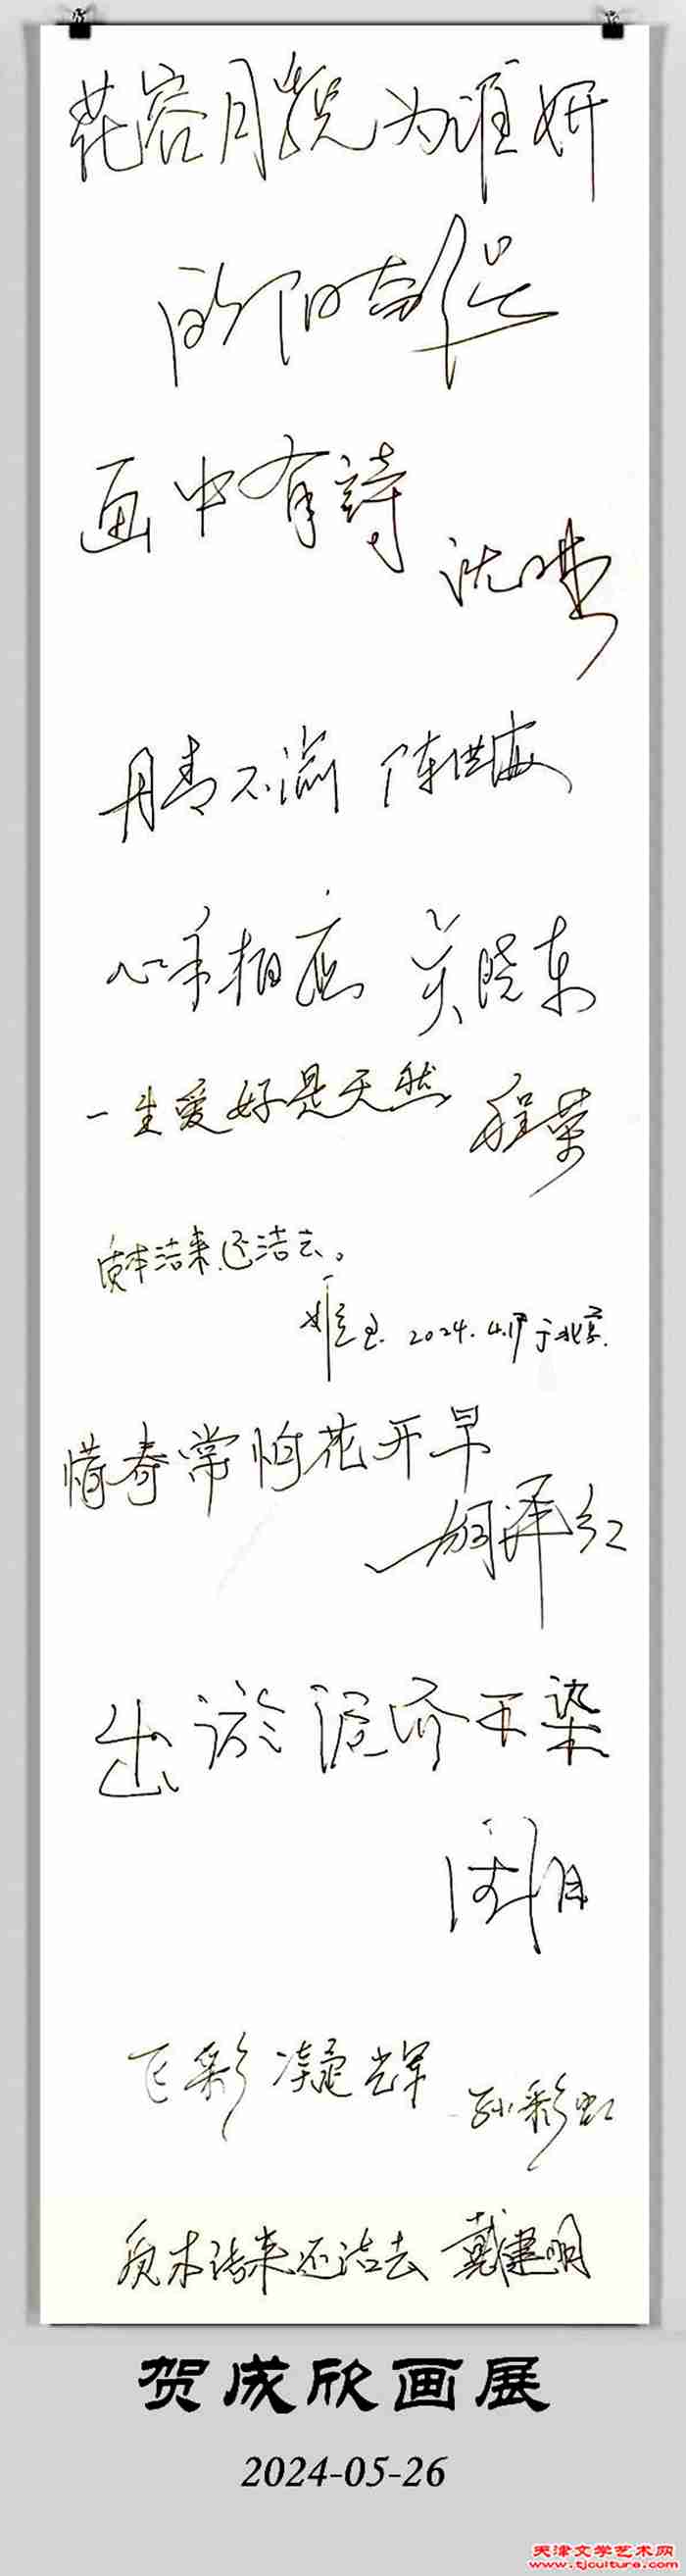 花容月貌为谁妍
画中有詩
丹青不渝 陈洪海
心手相应 吴晓东
一生爱好是天然 程荣
质本洁来还洁去。
2024.4.17于北京.
惜春常怕花开早
胡泽红
出淤泥而不染
飞彩凝辉 孙彩虹
质本洁来还洁去 戴建明
贺成欣画展
2024-05-26
天津文学艺术网
www.tjculture.com